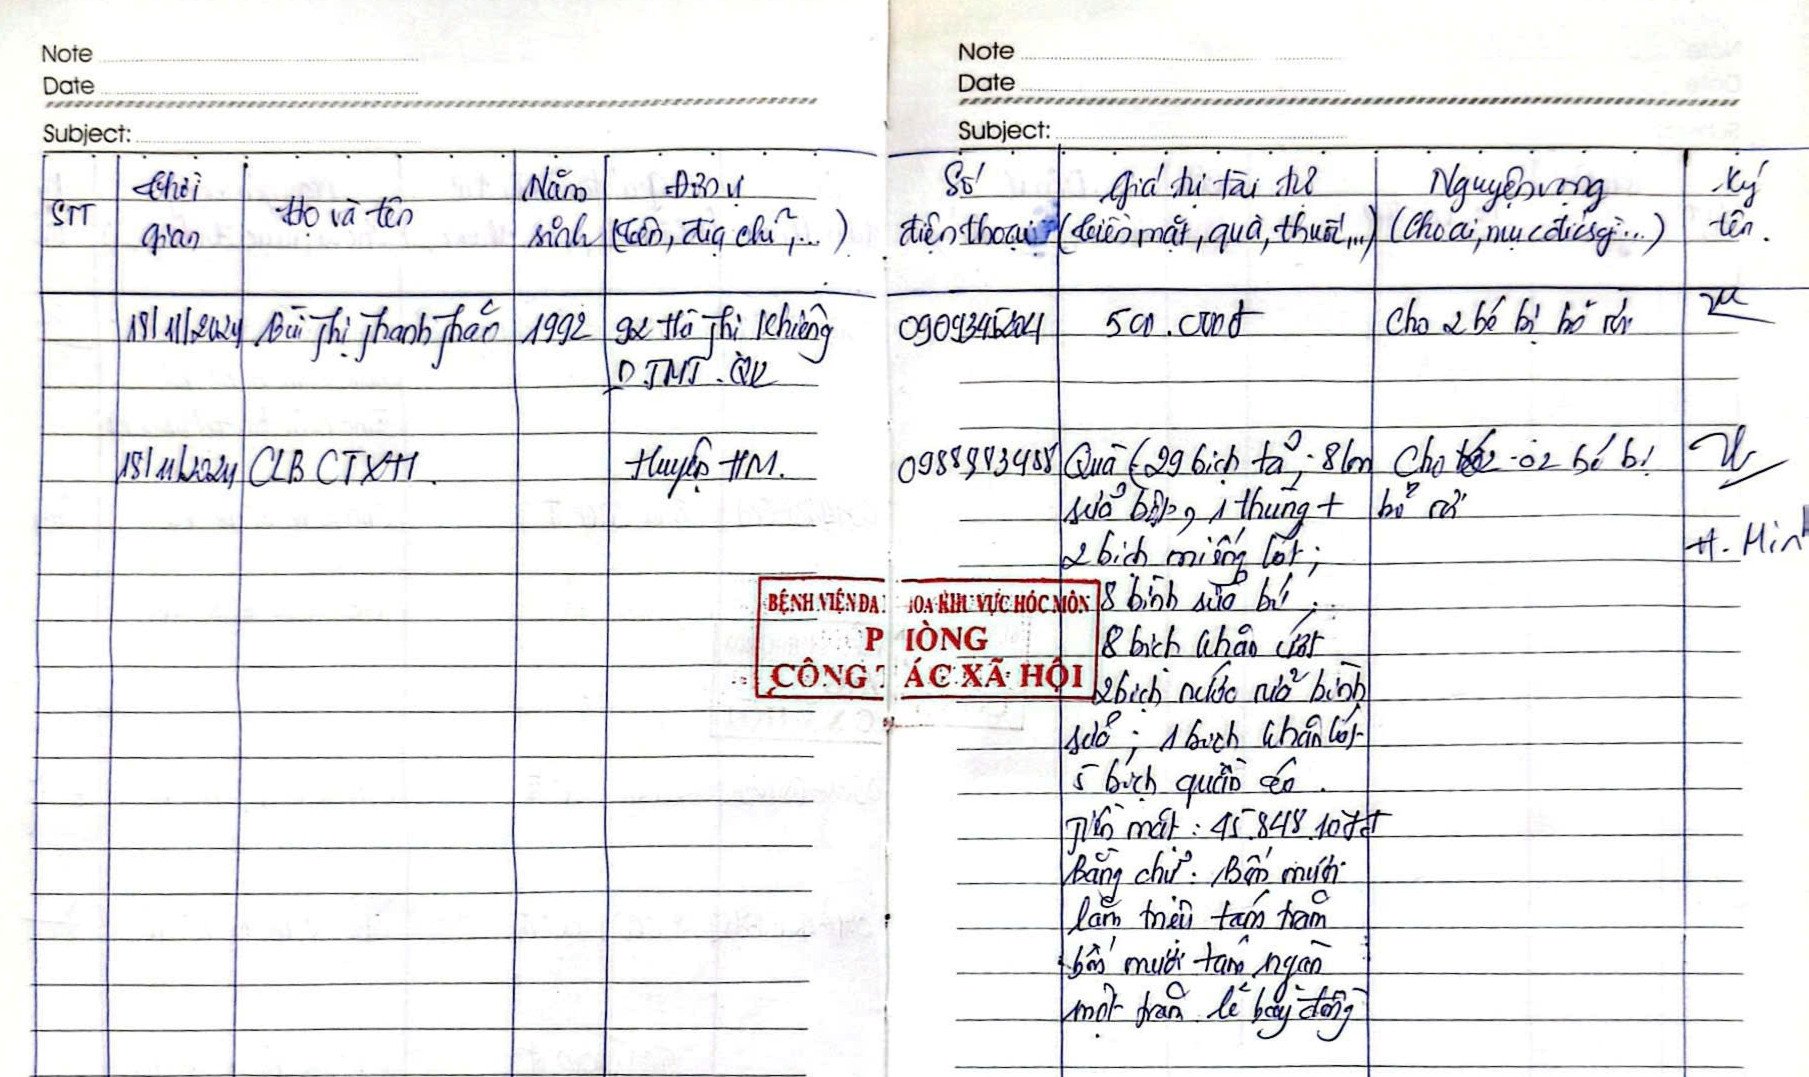 Note
Date
Subject:
Note
Date
Subject:
STT
Thời gian
Họ và tên
Năm sinh
Đơn vị
(tên, địa chỉ,...)
Số
điện thoại
Giá trị tài trợ
(tiền mặt, quà, thuốc,...)
Nguyện vọng
(Cho ai, mục đích gì...)
Ký tên.
18/11/2024
Bùi Thị Thanh Thảo
1992
92 Hà Thị Khiêng
P.TMT.Q12
500.000đ
Cho 2 bé bị bỏ rơi
18/11/2024
CLB CTXH.
Huyện HM.
Quà (29 bịch tả; 8 lon
sữa bột, 1 thùng +
2 bịch miếng lót;
8 bình sữa bú;
8 bịch khăn ướt
2 bịch nước rửa bình
sữa; 1 bịch khăn lót
5 bịch quần áo.
Tiền mặt: 45.848.107đ
Bằng chữ: Bốn mươi
lăm triệu tám trăm
bốn mươi tám ngàn
một trăm lẻ bảy đồng
Cho 02 bé bị
bỏ rơi
H. Minh
BỆNH VIỆN ĐA KHOA KHU VỰC HÓC MÔN
PHÒNG
CÔNG TÁC XÃ HỘI